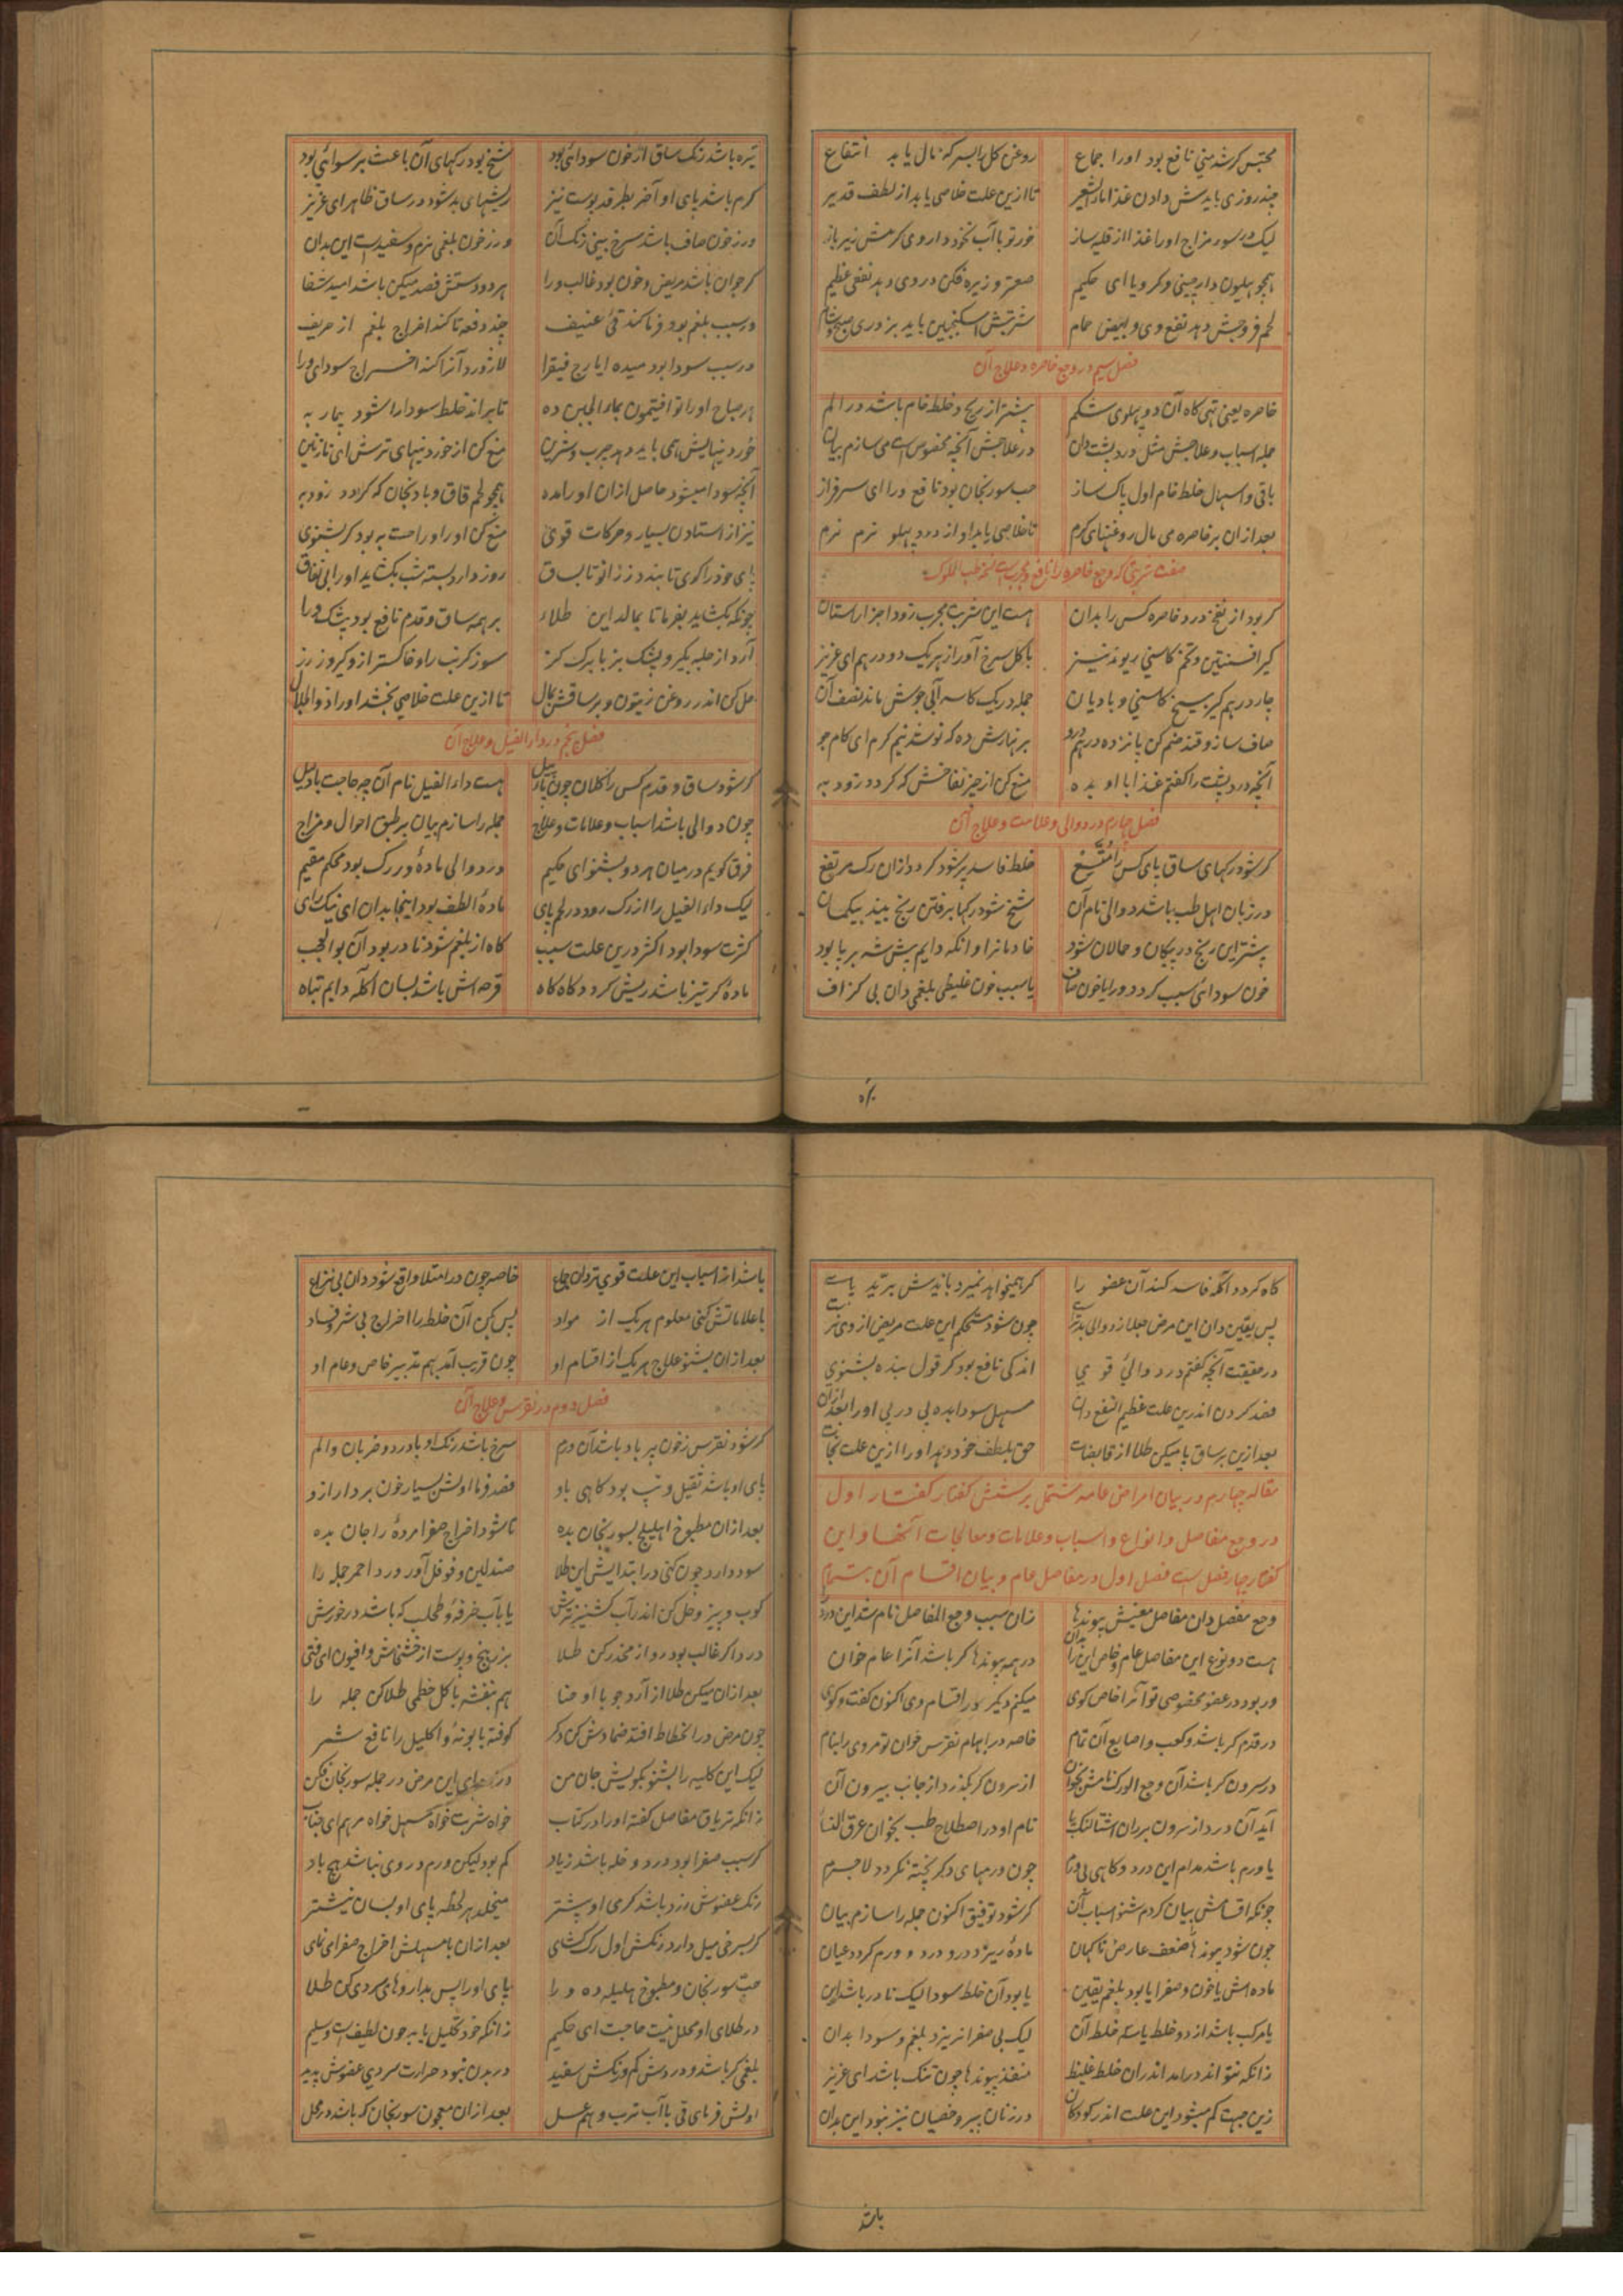 محتبس کر شد منی نافع بود اورا جماع روغن کل را بسر که مال یابد انتفاع
چند روزی بایدش دادن غذا ماء الشعیر تا ازین علت خلاصی یابد از لطف قدیر
لیک در سوء مزاج اورا غذا از قلیه ساز خور تو با آب نخود داروی کرمش
همچو هلیون دارچینی و کرویا ای حکیم صعتر و زیره فکن در وی دهد نفعی عظیم
لحم فروجش دهد نفع وی و ابیض حمام شربتش اسکنجبین باید بزوری صبح و شام
فصل سیم در وجع خاصره و علاج آن
خاصره یعنی تهی کاه آن دو پهلوی شکم بیشتر از ریح و خلط خام باشد در الم
جمله اسباب و علاجش مثل درد پشت دان در علاجش آنچه مخصوص است می سازم بیان
باقی و اسهال خلط خام اول پاک ساز حب سورنجان بود نافع ورا ای سرفراز
بعد ازان بر خاصره می مال روغنهای کرم تا خلاصی یابد او از درد پهلو نرم نرم
صفت شربتی که وجع خاصره را نافع و مجرب است
کر بود از نفخ درد خاصره کس را بدان هست این شربت مجرب زود اجزا را ستان
کیر افسنتین و تخم کاسنی ریوند نیز با کل سرخ آور از هریک دو درهم ای عزیز
چار درهم کیر بیخ کاسنی و بادیان جمله در یک کاسه آبی جوش ماند نصف آن
صاف ساز و قند ضم کن پانزده درهم درو بر نهارش ده که نوشد نیم کرم ای کام جو
آنچه درد پشت را کفتم غذا با او بده منع کن از چیز نفاخش که کردد زود به
فصل چهارم در دوالی و علامت و علاج آن
کر شود رکهای ساق پای کس را متسع خلط فاسد پر شود کردد ازان رک مرتفع
در زبان اهل طب باشد دوالی نام آن شخ شود رکها برفتن رنج بیند بیکمان
بیشتر این رنج در پیکان و حمالان شود خادمانرا و انکه دایم پیش شه بر پا بود
خون سودائی سبب کردد ورا یا خون صاف یا سبب خون غلیظی بلغمی دان بی کزاف
تیره باشد رنک ساق از خون سودائی بود شخ بود رکهای آن باعث بر سوائی بود
کرم باشد پای او آخر بطرقد پوست نیز ریشهای بد شود در ساق ظاهر ای عزیز
ور ز خون صاف باشد سرخ بینی رنک آن ور ز خون بلغمی نرم و سفید است این بدان
کر جوان باشد مریض و خون بود غالب ورا هر دو دستش فصد میکن باشد امید شفا
ور سبب بلغم بود فرما کند قیء عنیف چند دفعه تا کند اخراج بلغم از حریف
ور سبب سودا بود میده ایارج فیقرا لاژورد آنرا کند اخراج سودای ورا
هر صباح اورا تو افتیمون بماء الجبن ده تا براند خلط سودا را شود بیمار به
خوردنیهایش همی باید دهد چرب و شیرین منع کن از خوردنیهای ترش ای نازنین
آنچه سودا میشود حاصل ازان اورا مده همچو لحم قاق و بادنجان که کردد زود به
نیز از استادن بسیار و حرکات قوی منع کن اورا و راحت به بود کر بشنوی
پای خود را کوی تا بندد ز زانو تا بساق روز دارد بسته شب بکشاید اورا بی نفاق
چونکه بکشاید بفرما تا بمالد این طلاء بر همه ساق و قدم نافع بود بیشک ورا
آرد از حلبه بکیر و پشک بز با برک کز سوز کرنب را و خاکستر ازو کیر و ز رز
حل کن اندر روغن زیتون و بر ساقش بمال تا ازین علت خلاصی بخشد اورا ذو الجلال
فصل پنجم در داء الفیل و علاج آن
کر شود ساق و قدم کس را کلان چون پای پیل هست داء الفیل نام آن چه حاجت با دلیل
چون دوالی باشد اسباب و علامات و علاج جمله را سازم بیان بر طبق احوال و مزاج
فرق کویم در میان هر دو بشنو ای حکیم در دوالی ماده در رک بود محکم مقیم
لیک داء الفیل را از رک رود در لحم پای ماده الطف بود اینجا بدان ای نیک رای
کثرت سودا بود اکثر درین علت سبب کاه از بلغم شود نادر بود آن بو العجب
ماده کر تیز باشد ریش کردد کاه کاه قرحه اش باشد بسان آکله دایم تباه
کاه کردد آکله فاسد کند آن عضو را کر همیخواهد نمیرد بایدش ببرید پا
پس یقین دان این مرض جمله از دوالی بدتر است چون شود مستحکم این علت مریض از وی نرست
در حقیقت آنچه کفتم در دوالی قوی اندکی نافع بود کر قول بنده بشنوی
فصد کردن اندرین علت عظیم النفع دان مسهل سودا بده پی در پی اورا بعد ازان
بعد ازین بر ساق پا میکن طلا از قابضات حق بلطف خود دهد اورا ازین علت نجات
مقاله چهارم در بیان امراض عامه مشتمل بر شش کفتار کفتار اول
در وجع مفاصل و انواع و اسباب و علامات و معالجات آنها و این
کفتار چهار فصل است فصل اول در مفاصل عام و بیان اقسام آن
وجع مفصل دان مفاصل معنیش پیوندها زان سبب وجع المفاصل نام شد این درد را
هست دو نوع این مفاصل عام و خاص این را بدان در همه پیوندها کر باشد آنرا عام خوان
ور بود در عضو مخصوصی تو آنرا خاص کوی میکنم دیکر در اقسام وی اکنون کفت و کوی
در قدم کر باشد و کعب و اصابع آن تمام خاصه در ابهام نقرس خوان تو مر وی را بنام
در سرون کر باشد آن وجع الورک نامش بخوان از سرون کر بکذرد از جانب بیرون آن
آید آن درد از سرون بر ران اشتالنک پا نام او در اصطلاح طب بخوان عرق النسا
یا ورم باشد مدام این درد و کاهی بی ورم چون ورمهای دکر پخته نکردد لاجرم
چونکه اقسامش بیان کردم شنو اسباب آن کر شود توفیق اکنون جمله را سازم بیان
چون شود پیوندها ضعف عارض ناکهان ماده ریزد درو درد و ورم کردد عیان
ماده اش یا خون و صفرا یا بود بلغم یقین یا بود آن خلط سودا لیک نادر باشد این
یا مرکب باشد از دو خلط یا سه خلط آن لیک بی صفرا نریزد بلغم و سودا بدان
زانکه نتواند در آمد اندران خلط غلیظ منفذ پیوندها چون تنک باشد ای عزیز
زین جهت کم میشود این علت اندر کودکان در زنان پیر و خصیان نیز نبود این بدان
باشد
باشد از اسباب این علت قوی تر دان جماع خاصه چون در امتلا واقع شود دان بی نزاع
با علاماتش کنی معلوم هریک از مواد پس کن آن خلط را اخراج بی شر و فساد
بعد ازان بشنو علاج هریک از اقسام او چون قریب آمد بهم تدبیر خاص و عام او
فصل دوم در نقرس و علاج آن
کر شود نقرس ز خون پر باد باشد آن ورم سرخ باشد رنک او با درد و ضربان و الم
پای او باشد ثقیل و تپ بود کاهی باو فصد فرما اولش بسیار خون بردار ازو
بعد ازان مطبوخ اهلیلج بسورنجان بده تا شود اخراج صفرا مرده را جان بده
سود دارد چون کنی در ابتدایش این طلا صندلین و فوفل آور ورد احمر جمله را
کوب و بیز و حل کن اندر آب کشنیز ترش یا بآب خرفه و طحلب که باشد در خورش
درد اکر غالب بود رو از مخدر کن طلا بزر بنج و پوست از خشخاش و افیون ای فتی
بعد ازان میکن طلا از آرد جو با او حنا هم بنفشه با کل خطمی طلا کن جمله را
چون مرض در انحطاط افتد ضمادش کن دکر کوفته بابونه و اکلیل را نافع شمر
لیک این کلیه را بشنو بکویش جان من در دواهای این مرض در جمله سورنجان فکن
زانکه تریاق مفاصل کفته اورا در کتاب خواه شربت خواه مسهل خواه مرهم ای جناب
کر سبب صفرا بود درد و خله باشد زیاد کم بود لیکن ورم در وی نباشد هیچ باد
رنک عضوش زرد باشد کرمی او بیشتر میخلد هر لحظه پای او بسان نیشتر
کر بسرخی میل دارد رنکش اول رک کشای بعد ازان با مسهلش اخراج صفرا می نمای
حب سورنجان و مطبوخ هلیله ده ورا پای اورا پس بداروهای سردی کن طلا
در طلای او محلل نیست حاجت ای حکیم زانکه خود تحلیل یابد چون لطیف است و سلیم
بلغمی کر باشد و دردش کم و رنکش سفید در بدن نبود حرارت سردی عضوش پدید
اولش فرمای قی با آب ترب و هم عسل بعد ازان معجون سورنجان که باشد در محل